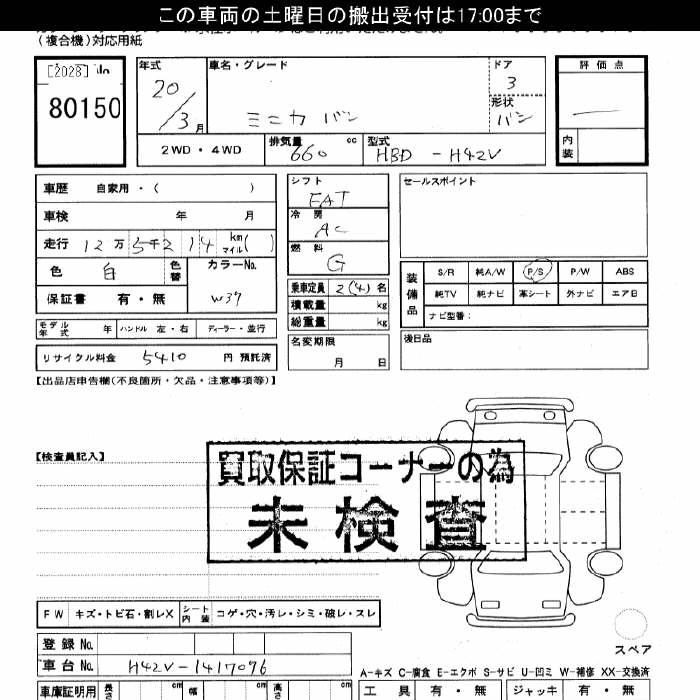 この車両の土曜日の搬出受付は17:00まで
(複合機)対応用紙
[2028] No
80150
年式 車名・グレード ドア 評価点
20/3月 ミニカバン 3
形状 バン
2WD・4WD 排気量 660 cc 型式 HBD-H42V 内装
車歴 自家用・( )
シフト FAT
セールスポイント
車検 年 月
冷房 AC
走行 12万5千214 km マイル( )
燃料 G
色 白 色替 カラーNo. W37
乗車定員 2(4)名
装備品 S/R 純A/W P/S P/W ABS
純TV 純ナビ 革シート 外ナビ エアB
ナビ型番:
保証書 有・無
積載量 kg
総重量 kg
モデル年式 年 ハンドル 左・右 ディーラー・並行
名変期限 月 日
後日品
リサイクル料金 5410 円 預託済
【出品店申告欄(不良箇所・欠品・注意事項等)】
【検査員記入】
買取保証コーナーの為
未検査
FW キズ・トビ石・割レX シート内装 コゲ・穴・汚レ・シミ・破レ・スレ
スペア
登録No.
車台No. H42V-1417096
A-キズ C-腐食 E-エクボ S-サビ U-凹ミ W-補修 XX-交換済
車庫証明用 長さ cm 幅 cm 高さ cm
工具 有・無 ジャッキ 有・無